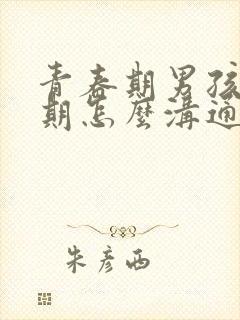 青春期男孩
期怎麼溝通
朱彥西